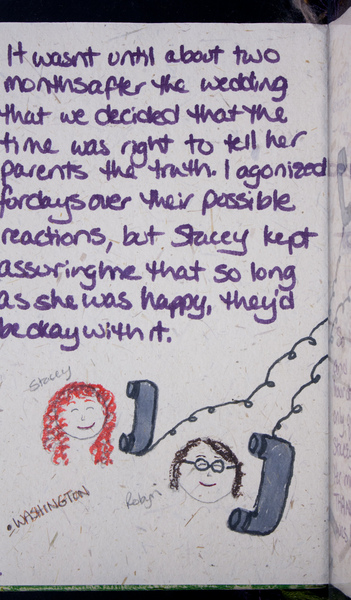 It wasnt until about two
months after the wedding
that we decided that the
time was right to tell her
parents the truth. I agonized
for days over their possible
reactions, but Stacey kept
assuring me that so long
as she was happy, they'd
be okay with it.
Stacey
Robyn
• WASHINGTON